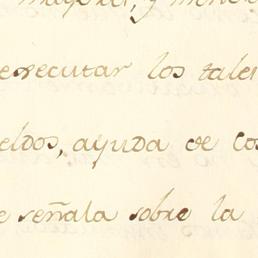 mayores, y menor
executar los tales
eldos, ayuda de cos
e señala sobre la